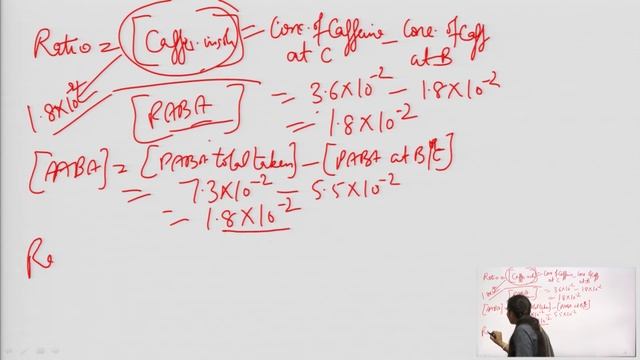 Ratio = [Caffei. insolu] = Conc. of Caffeine at C - Conc. of Caff at B
1.8×10⁻² [PABA] = 3.6×10⁻² - 1.8×10⁻²
= 1.8×10⁻²
[PABA] = [PABA total taken] - [PABA at B/C]
= 7.3×10⁻² - 5.5×10⁻²
= 1.8×10⁻²
Re